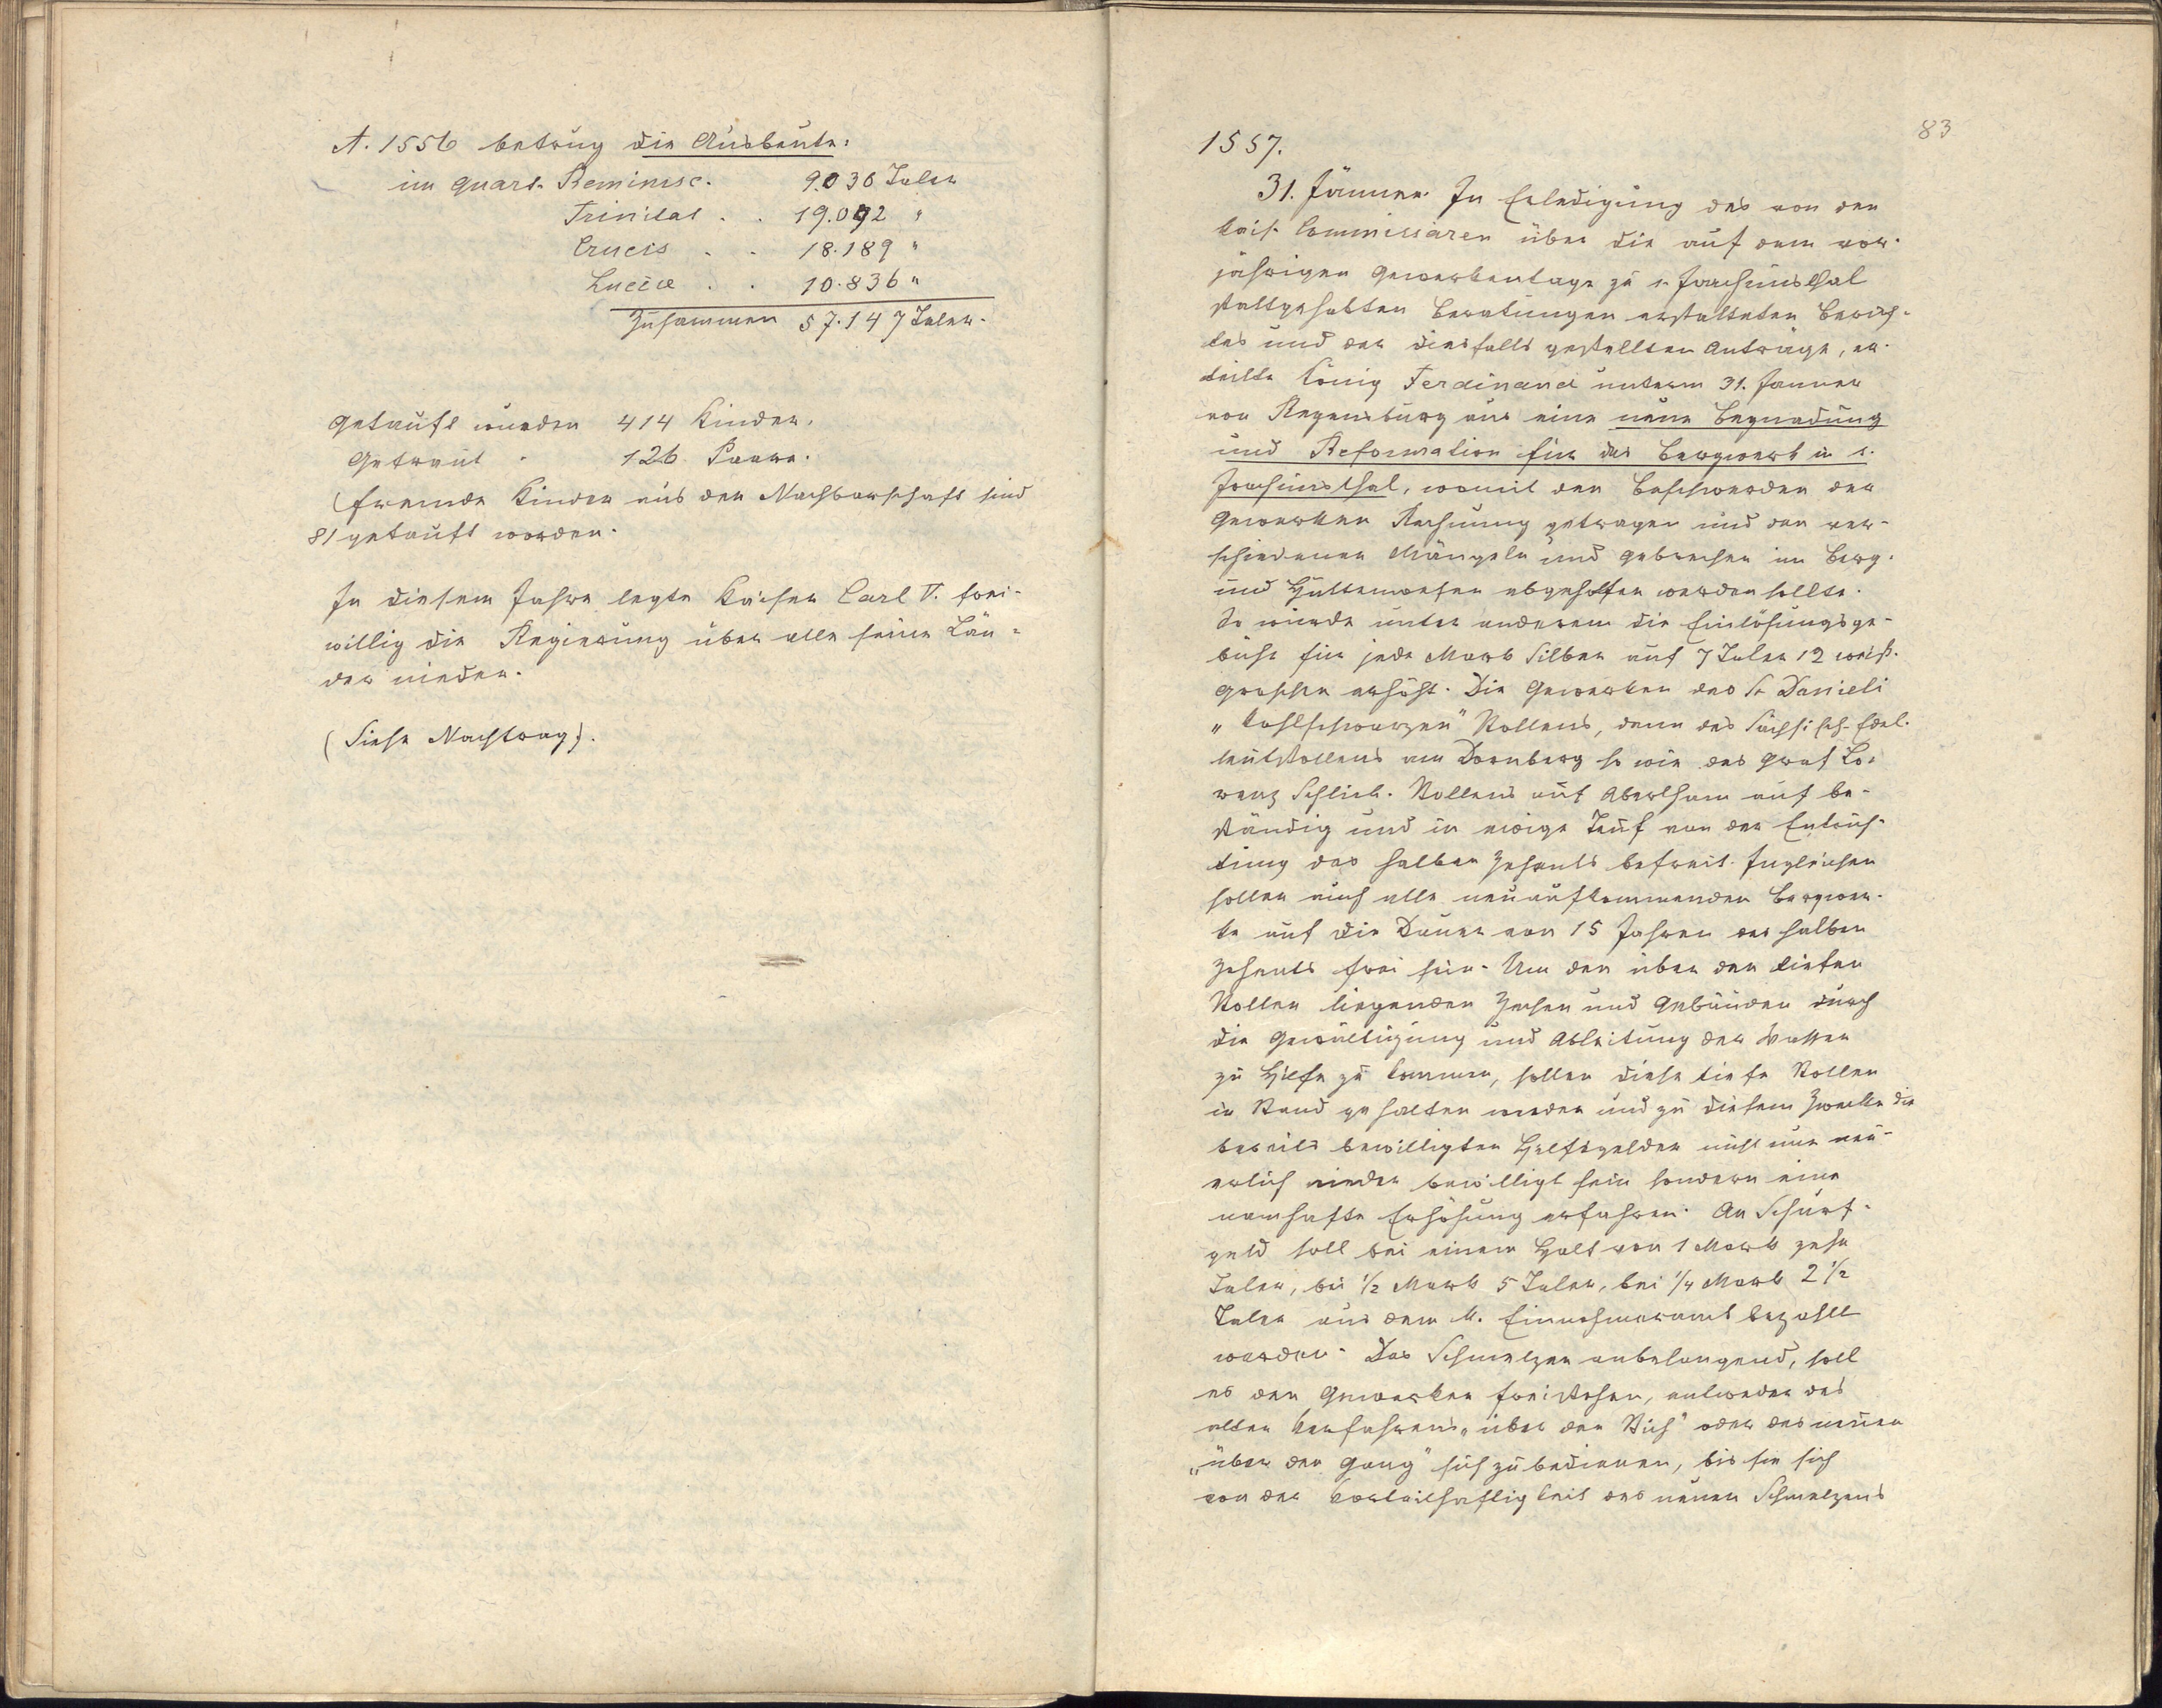 A. 1556 betrug die Ausbeute:
im quart. Reminisc. 9.030 Taler
Trinitat . . 19.092 "
Crucis . . 18.189 "
Luciæ . . 10.836 "
Zusammen 57.147 Taler.
Getauft wurden 414 Kinder.
Getraut " 126 Paare.
(fremde Kinder aus der Nachbarschaft sind
81 getauft worden.
In diesem Jahre legte Kaiser Carl V. frei-
willig die Regierung über alle seine Län-
der nieder.
(Siehe Nachtrag).
83
1557.
31. Jänner. In Erledigung des von den
kais. Commissären über die auf dem vor-
jährigen Gewerkentage zu s. Joachimsthal
stattgehabten Beratungen erstatteten Berich-
tes und der diesfalls gestellten Anträge, er-
teilte König Ferdinand unterm 31. Janner
von Regensburg aus eine neue Begnadung
und Reformation für das Bergwerk in s.
Joachimsthal, womit den Beschwerden der
Gewerken Rechnung getragen und den ver-
schiedenen Mängeln und Gebrechen im Berg-
und Hüttenwesen abgeholfen werden sollte.
So wurde unter anderem die Einlösungsge-
bühr für jede Mark Silber auf 7 Taler 12 weiß-
groschen erhöht. Die Gewerken des St Danieli
"kohlschwarzen" Stollens, dann des Sächsisch-Edel-
leutstollens am Dornberg so wie des Graf Lo-
renz Schlick. Stollens auf Abertham auf be-
ständig und in ewige Teuf von der Entrich-
tung des halben Zehents befreit. Ingleichen
sollen auch alle neuaufkommenden Bergwer-
ke auf die Dauer von 15 Jahren des halben
Zehents frei sein. Um den über den tiefen
Stollen liegenden Zechen und Gebäuden durch
die Gewältigung und Ableitung der Wasser
zu Hilfe zu kommen, sollen diese tiefe Stollen
in Stand gehalten werden und zu diesem Zwecke die
bereits bewilligten Hilfsgelder nicht nur neu-
erlich wieder bewilligt sein sondern eine
namhafte Erhöhung erfahren. An Schurf-
geld soll bei einem Halt von 1 Mark zehn
Taler, bei 1/2 Mark 5 Taler, bei 1/4 Mark 2 1/2
Taler aus dem k. Einnehmeramt bezahlt
werden. Das Schmelzen anbelangend, soll
es den Gewerken freistehen, entweder des
alten Verfahrens "über den Stich" oder des neuen
"über den Gang" sich zu bedienen, bis sie sich
von der Vorteilhaftigkeit des neuen Schmelzens